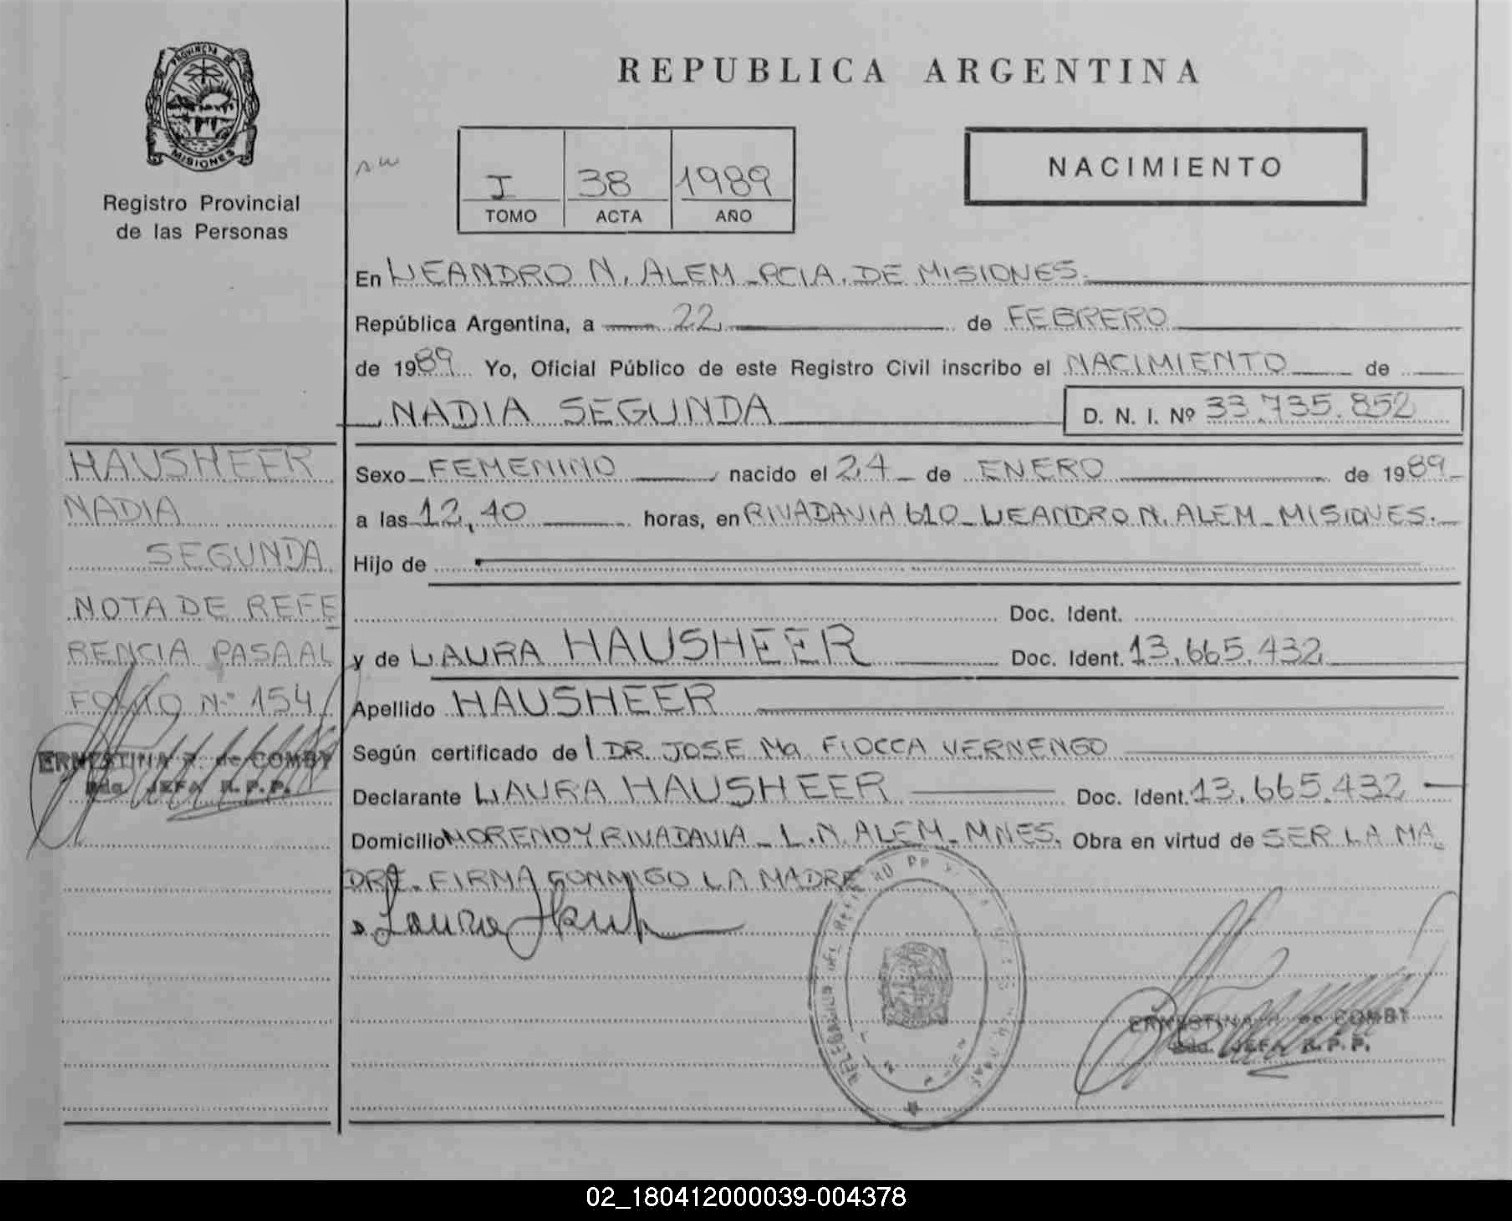 PROVINCIA DE
MISIONES
Registro Provincial
de las Personas
REPUBLICA ARGENTINA
I 38 1989
TOMO ACTA AÑO
NACIMIENTO
En LEANDRO N. ALEM - PCIA. DE MISIONES.
República Argentina, a 22 de FEBRERO
de 1989 Yo, Oficial Público de este Registro Civil inscribo el NACIMIENTO de
NADIA SEGUNDA D. N. I. Nº 33.735.852
HAUSHEER
NADIA
SEGUNDA
NOTA DE REFE
RENCIA PASA AL
FOLIO Nº 154
ERNESTINA de COMBY
JEFA R.P.P.
Sexo FEMENINO nacido el 24 de ENERO de 1989
a las 12,40 horas, en RIVADAVIA 610 - LEANDRO N. ALEM - MISIONES.
Hijo de
Doc. Ident.
y de LAURA HAUSHEER Doc. Ident. 13.665.432
Apellido HAUSHEER
Según certificado de DR. JOSE Ma. FIOCCA VERNENGO
Declarante LAURA HAUSHEER Doc. Ident. 13.665.432
Domicilio MORENO Y RIVADAVIA - L.N. ALEM - MNES. Obra en virtud de SER LA MA
DRE. FIRMA CONMIGO LA MADRE
ERNESTINA de COMBY
JEFA R.P.P.
02_180412000039-004378